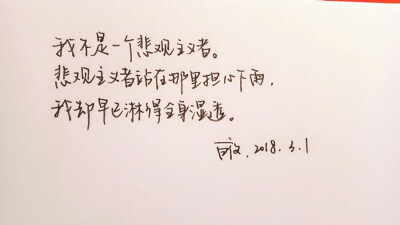 我不是一个悲观主义者。
悲观主义者站在那里担心下雨，
我却早已淋得全身湿透。
2018.3.1